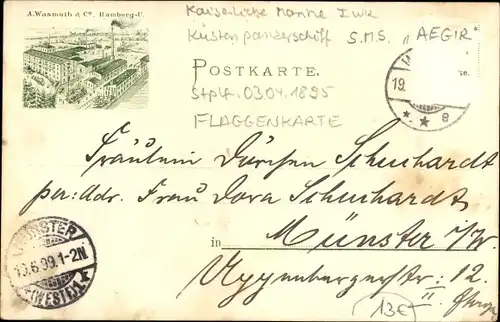 A. Wasmuth & Co, Hamburg-U.
Kaiserliche Marine I WK
Küstenpanzerschiff S.M.S. „AEGIR
POSTKARTE.
Stplf. 03.04.1895
FLAGGENKARTE
19.
** e
Fräulein Dorchen Schuchardt
per. Adr. Frau Dora Schuchardt
in Münster i/W.
Uppenbergerstr: 12.
II.
MÜNSTER
10.6.99.1-2N
(WESTF)1
13€